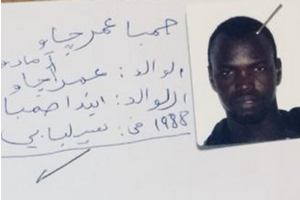 حمبا عمر جياو
الوالد: عمر جياو
الوالد: ايندا صمبا
1988 في: سيلبابي